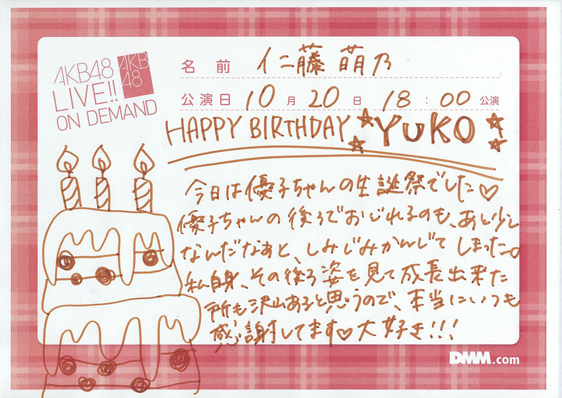 AKB48
LIVE!!
ON DEMAND
AKB
48
名前 仁藤萌乃
公演日 10月20日 18:00公演
HAPPY BIRTHDAY ☆YUKO☆
今日は優子ちゃんの生誕祭でした♡
優子ちゃんの後ろでおどれるのも、あと少し
なんだなぁと、しみじみかんじてしまった。
私自身、その後ろ姿を見て成長出来た
所も沢山あると思うので、本当にいつも
感謝してます♡大好き!!!
DMM.com